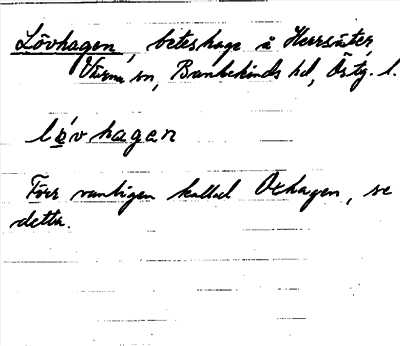 Lövhagen, beteshage å Herrsäter,
Värna sn, Bankekinds hd, Östg. l.
lǿvhagen
Förr vanligen kallad Oxhagen, se
detta.